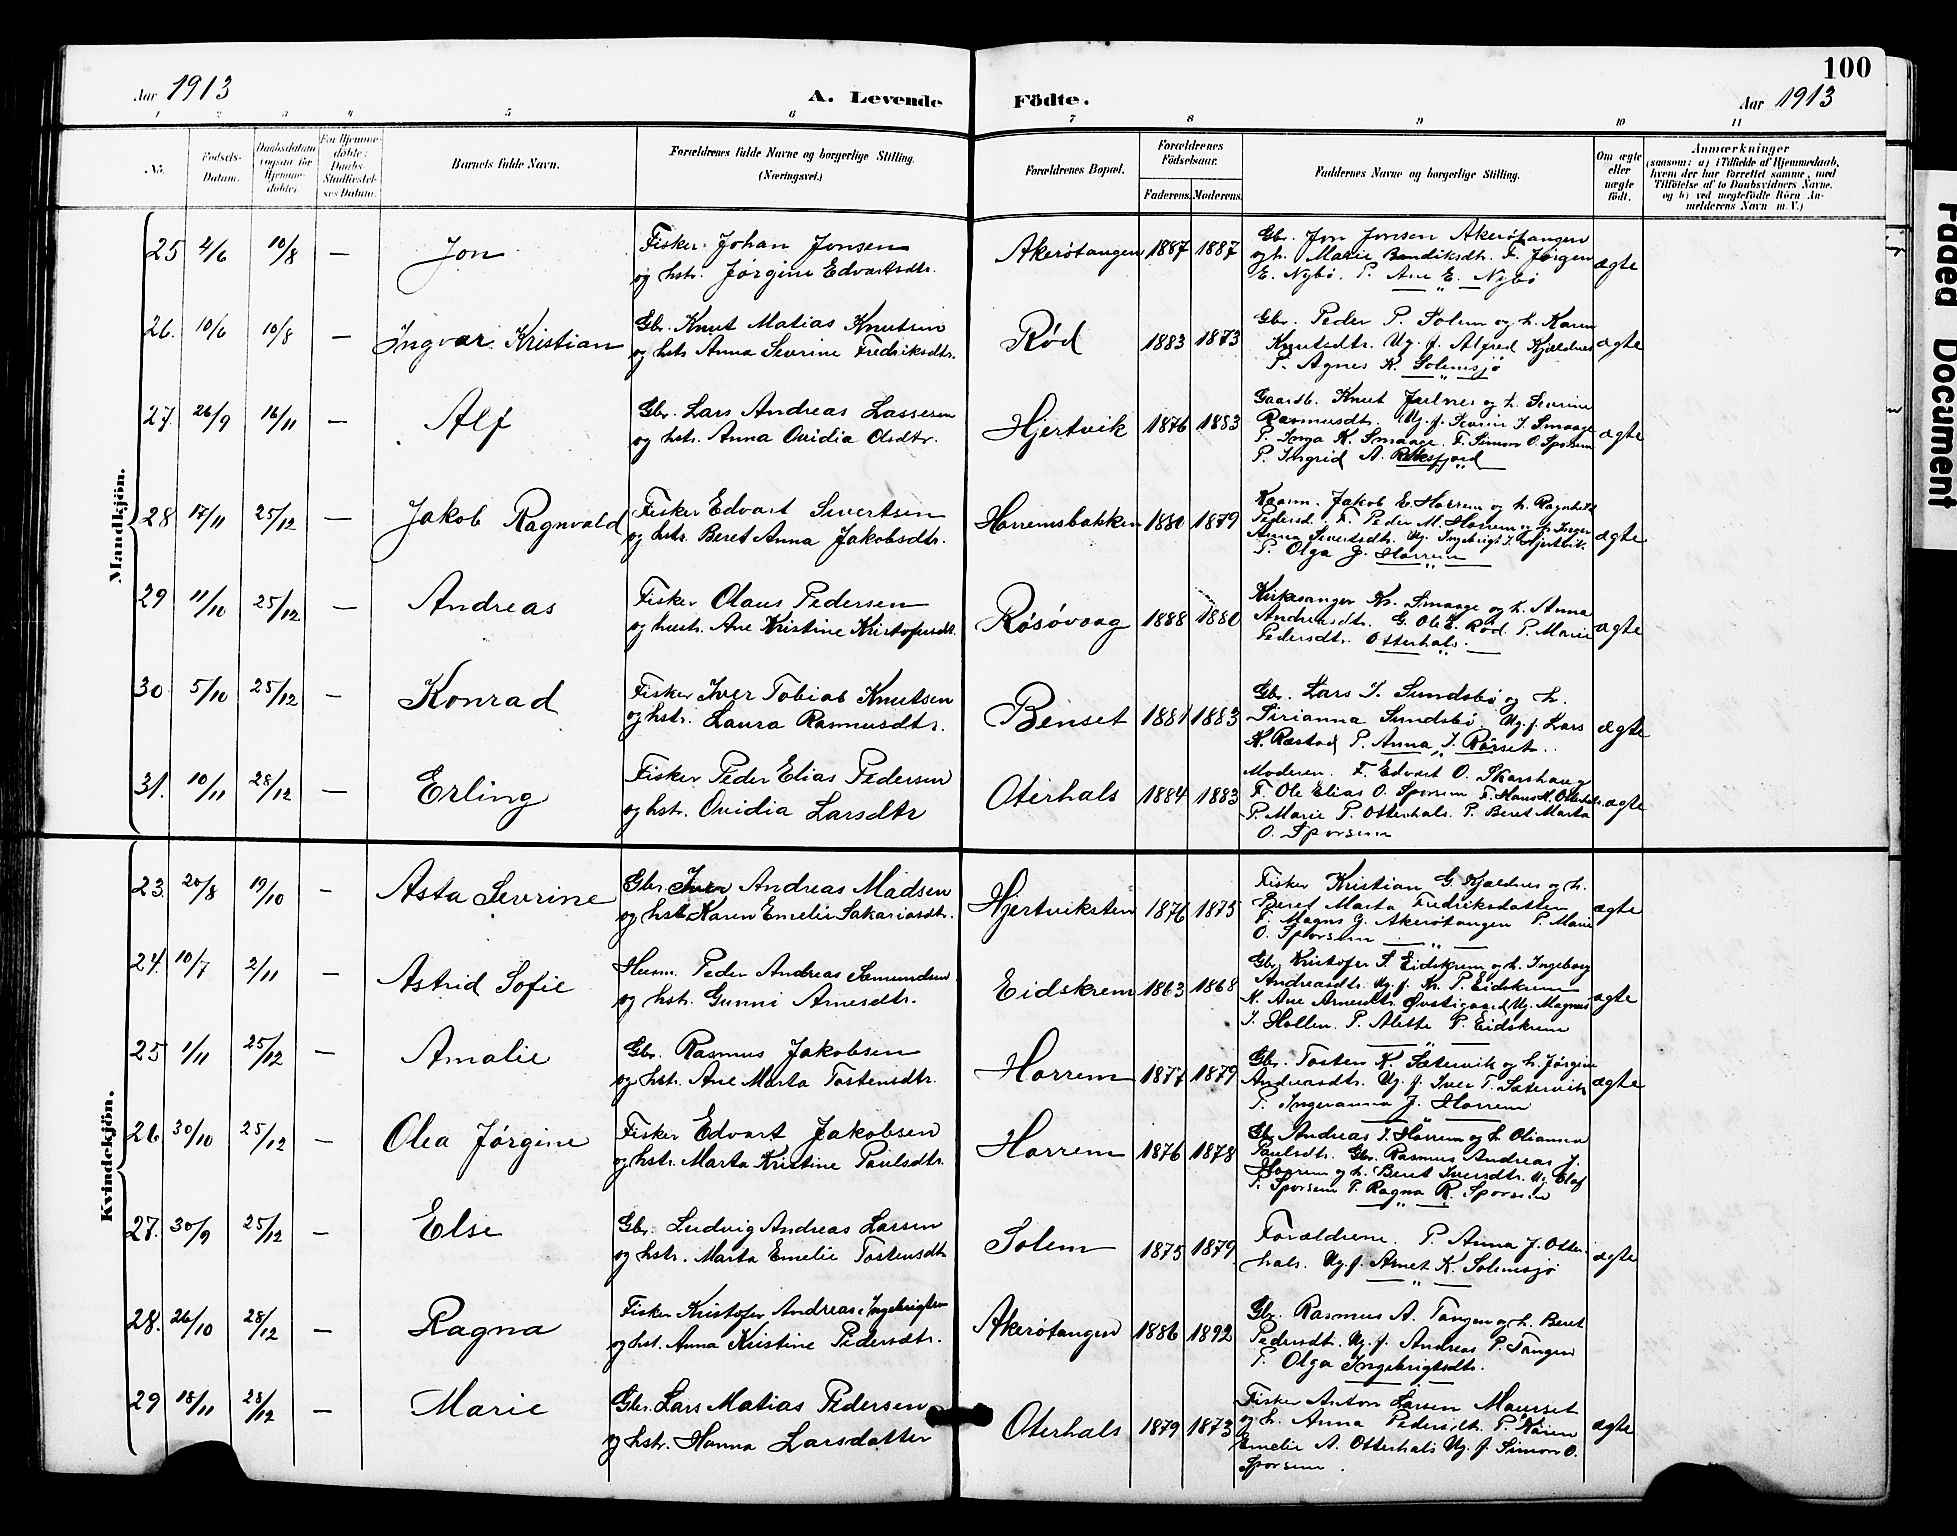 100
Aar 1913 A. Levende Födte. Aar 1913
1 2 3 4 5 6 7 8 9 10 11
No. Födsels-Datum. Daabsdatum (ogsaa for Hjemmedöbte). For Hjemmedöbte: Daabs-Stadfæstelses Datum. Barnets fulde Navn. Forældrenes fulde Navne og borgerlige Stilling. (Næringsvei.) Forældrenes Bopæl. Forældrenes Födselsaar. Faderens. Moderens. Faddernes Navne og borgerlige Stilling. Om ægte eller uægte født. Anmærkninger (saasom: a) i Tilfælde af Hjemmedaab, hvem der har forrettet samme, med Tilföielse af to Daabsvidners Navne, og b) ved uægtefödte Börn Anmelderens Navn m.V.)
Mandkjön.
25 4/6 10/8 — Jon Fisker Johan Jonsen og hstr. Jørgine Edvartsdtr. Akerøtangen 1887 1887 Gbr. Jon Jonsen Akerøtangen og h. Marie Bendiksdtr. F. Jørgen E. Nybø. P. Ane E. Nybø ægte
26. 10/6 10/8 — Ingvar Kristian Gbr. Knut Matias Knutsen og hstr Anna Sevrine Fredriksdtr. Rød 1883 1873 Gbr. Peder P. Solem og h. Karen Knutsdtr. Ug. f. Alfred Kjældnes P. Agnes K. Solemsjø ægte
27. 26/9 16/11 — Alf Gbr. Lars Andreas Lassesen og hstr. Anna Ovidia Olsdtr. Hjertvik 1876 1883 Gaardb. Knut Julnes og h. Sevrine Rasmusdtr. Ug. f. Severin I. Smaage P. Inga K. Smaage. F. Simon O. Sporsem P. Ingrid A. ægte
28 17/11 25/12 — Jakob Ragnvald Fisker Edvart Sivertsen og hstr. Beret Anna Jakobsdtr. Harremsbakken 1880 1879 Kaarm. Jakob E. Harrem og h. Ragnhild Pedersd. F. Peder M. Harrem og h. Inger Anna Sivertsdtr. Ug. Ingebrigt I. Hjertvik. P. Olga J. Harrem ægte
29 11/10 25/12 — Andreas Fisker Olaus Pedersen og hustr. Ane Kristine Kristofersdtr. Røsøvaag 1888 1880 Kirkesanger Kr. Smaage og h. Anna Andreasdtr. G. Ole E. Rød. P. Marie Pedersdtr. Otterhals. ægte
30 5/10 25/12 — Konrad Fisker Iver Tobias Knutsen og hstr. Laura Rasmusdtr. Benset 1881 1883 Gbr. Lars I. Sundsbø og h. Sirianna Sundsbø. Ug. f. Lars K. Ræstad P. Anna I. Rørset. ægte
31. 10/11 28/12 — Erling Fisker Peder Elias Pedersen og hstr. Ovidia Larsdtr Oterhals 1884 1883 Moderen. F. Edvart O. Skarshaug F. Ole Elias O. Sporsem F. Hans M. Otterhals P. Marie P. Otterhals. P. Beret Marta O. Sporsem ægte
Kvindekjön.
23. 20/8 19/10 — Asta Sevrine Gbr. Iver Andreas Madsen og hstr Karen Emelie Sakariasdtr. Hjertviksten 1876 1875 Fisker Kristian G. Kjældnes og h. Beret Marta Fredriksdatter F. Magns G. Akerøtangen P. Marie O. Sporsem ægte
24. 10/7 2/11 — Astrid Sofie Husm. Peder Andreas Samundsen og hstr. Gunni Arnesdtr. Eidskrem 1863 1868 Gbr. Kristofer S. Eidskrem og h. Ingeborg Andreasdtr. Ug. f. Kr. P. Eidskrem K. Ane Arnesdtr. Øvstigaard Ug. Magnus I. Hollen. P. Alette P. Eidskrem ægte
25 1/11 25/12 — Amalie Gbr. Rasmus Jakobsen og hstr. Ane Marta Tostensdtr. Harrem 1877 1879 Gbr. Tosten K. Sætervik og h. Jørgine Andreasdtr. Ug. f. Iver T. Sætervik P. Ingeranna J. Harrem ægte
26 30/10 25/12 — Olea Jørgine Fisker Edvart Jakobsen og hstr. Marta Kristine Paulsdtr. Harrem 1876 1878 Gbr Andreas I. Harrem og h. Olianna Paulsdtr. Gbr. Rasmus Andreas J. Harrem og h. Beret Iversdtr. Ug. Olaf P. Sporsem P. Ragna R. Sporsem
27. 30/9 25/12 — Else Gbr. Ludvig Andreas Larsen og hstr. Marta Emelie Tostensdtr Solem 1875 1879 Forældrene. P. Anna J. Otterhals. Ug. f. Arnet K. Solemsjø ægte
28. 26/10 28/12 — Ragna Fisker Kristofer Andreas Ingebrigtsen og hst. Anna Kristine Pedersdtr. Akerøtangen 1886 1892 Gbr. Rasmus A. Tangen og h. Beret Pedersdt. Ug. f. Andreas P. Tangen P. Olga Ingebrigtsdtr. ægte
29 18/11 28/12 — Marie Gbr. Lars Matias Pedersen og hstr. Hanna Larsdatter Oterhals 1879 1873 Fisker Anton Larsen Mauerset og h. Anna Pedersdtr. P. Karen Emelie A. Otterhals Ug. f. Simon O. Sporsem. ægte
Faded Document